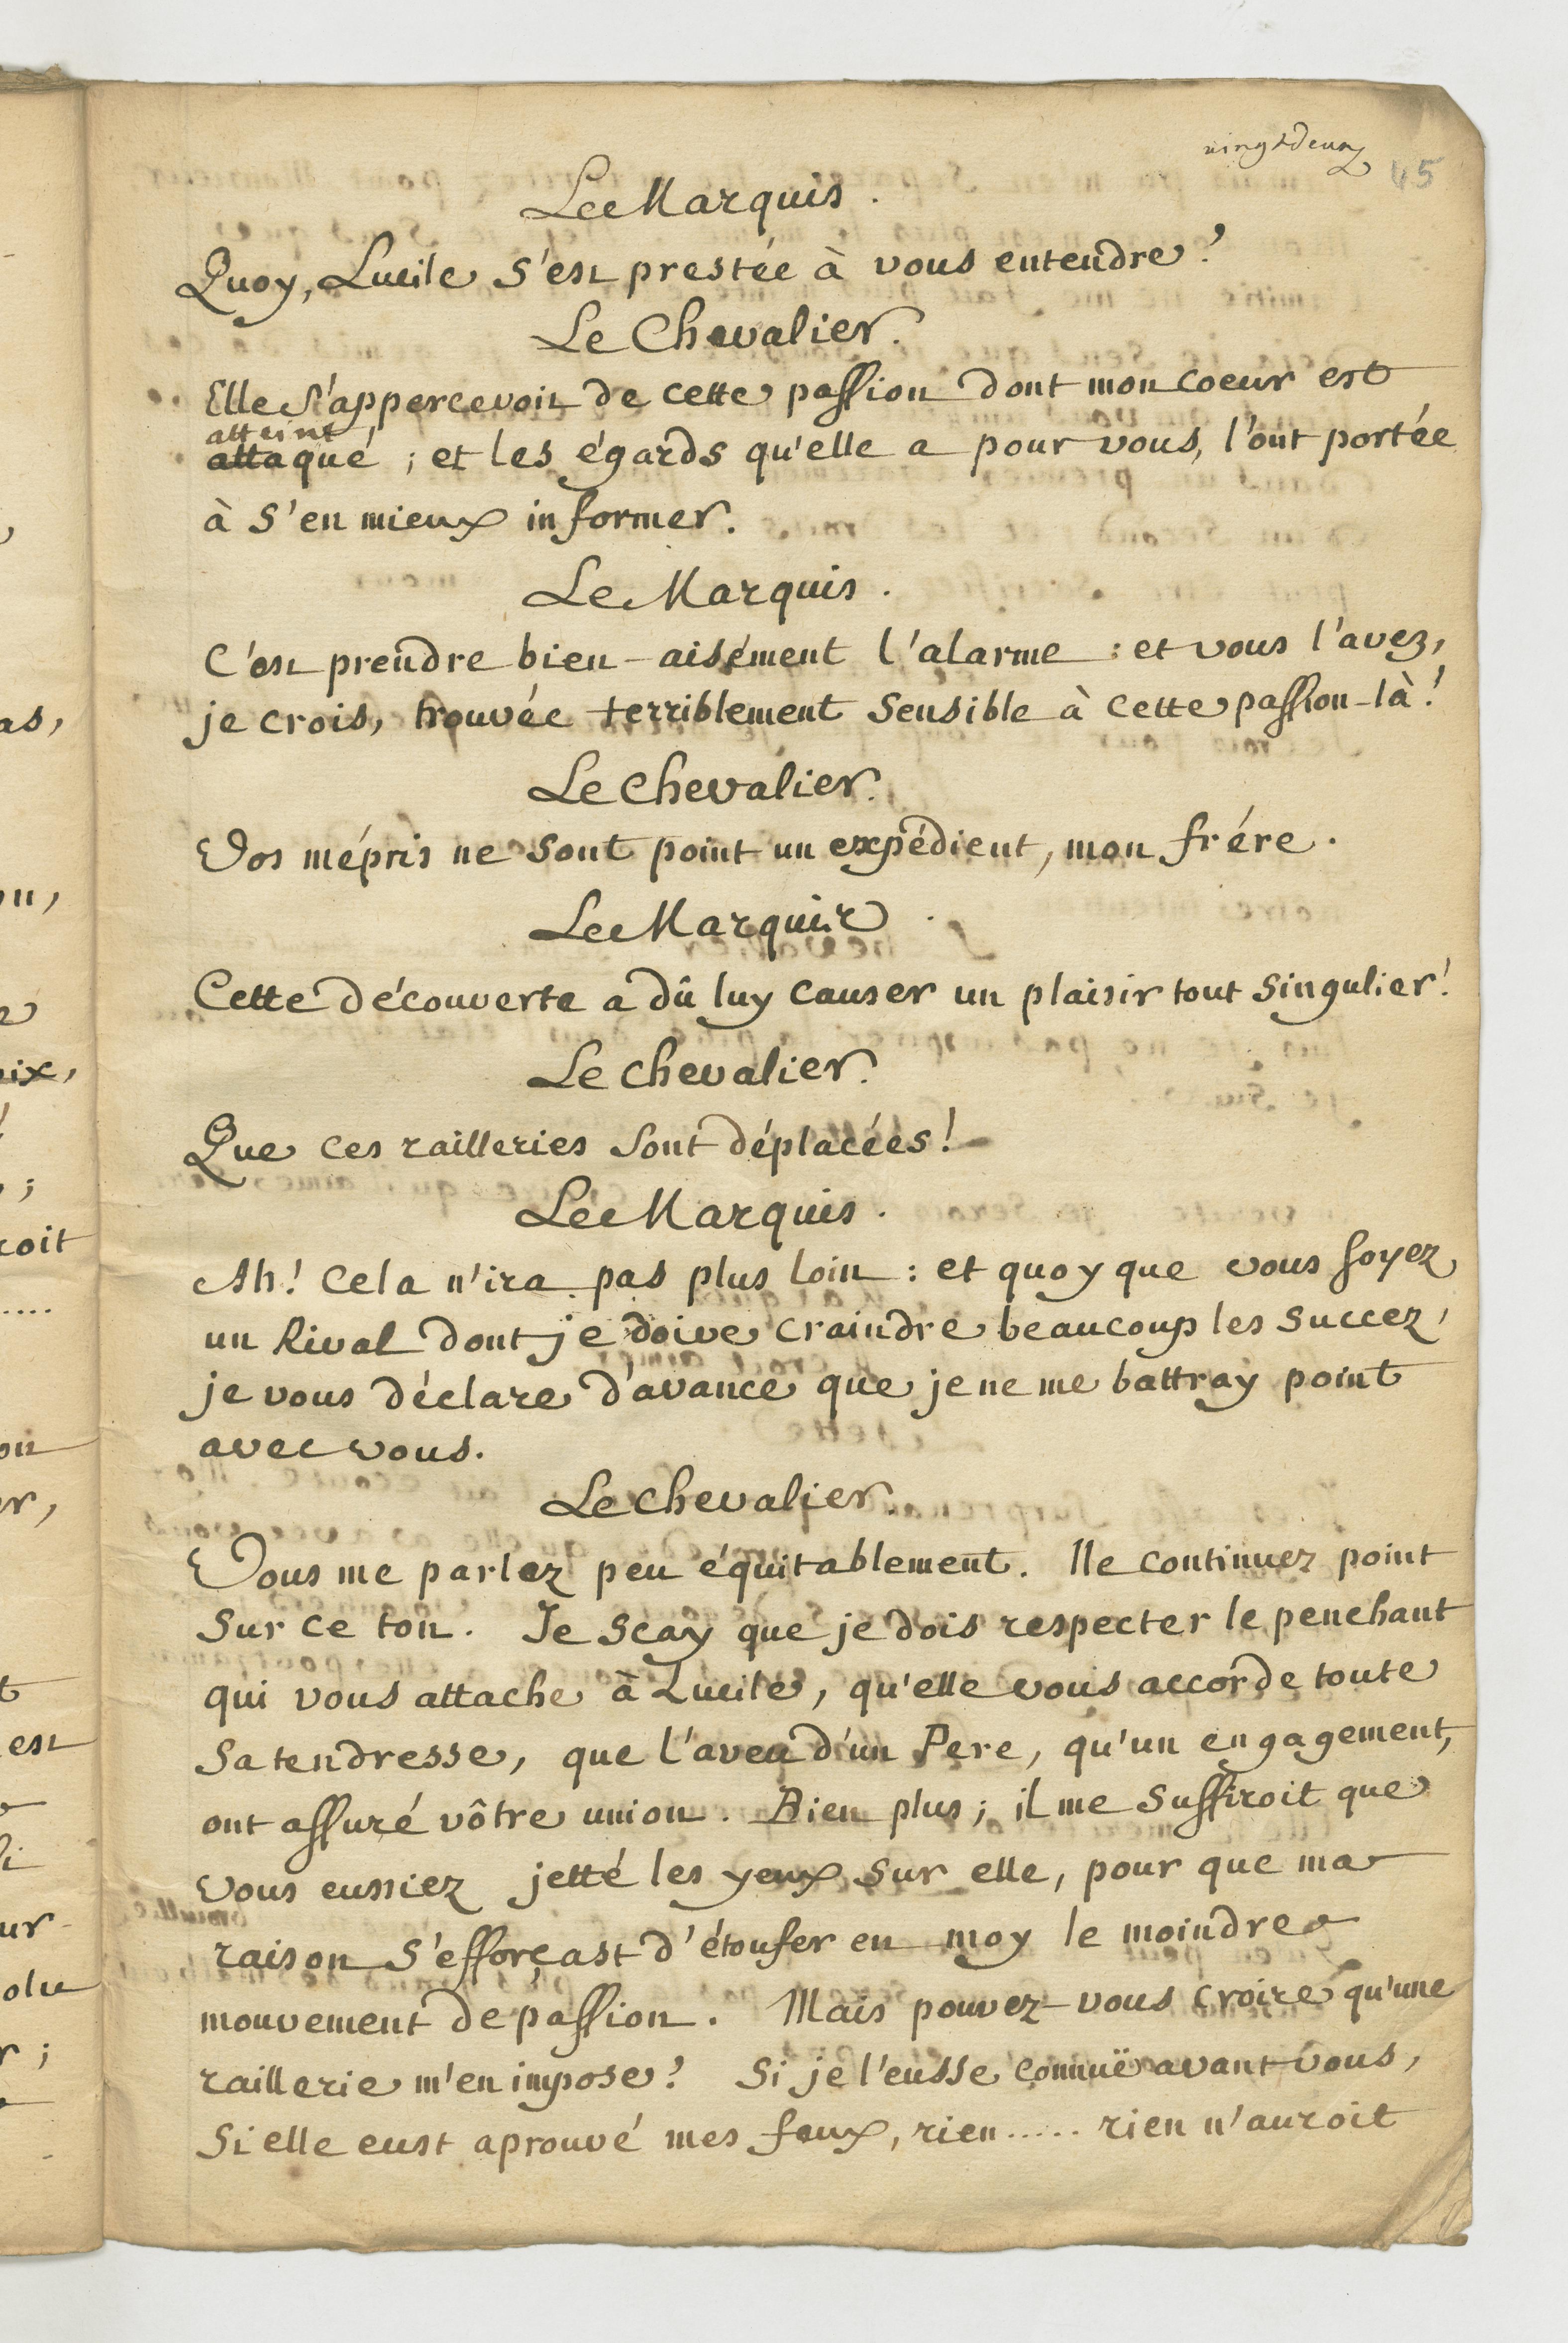 vingtdeux
45
Le Marquis.
Quoy, Lucile s'est prestée à vous entendre?
Le Chevalier.
Elle s'appercevoit de cette passion dont mon coeur est
atteint
attaqué; et les égards qu'elle a pour vous, l'ont portée
à s'en mieux informer.
Le Marquis.
C'est prendre bien-aisément l'alarme: et vous l'avez,
je crois, trouvée terriblement sensible à cette passion-là!
Le chevalier.
Vos mépris ne sont point un expédient, mon frére.
Le Marquis.
Cette découverte a dû luy causer un plaisir tout singulier!
Le chevalier.
Que ces railleries sont déplacées!
Le Marquis.
Ah! cela n'ira pas plus loin: et quoy que vous soyez
un Rival dont je doive craindre beaucoup les succez,
je vous déclare d'avance que je ne me battray point
avec vous.
Le chevalier.
Vous me parlez peu équitablement. Ne continuez point
sur ce ton. Je scay que je dois respecter le penchant
qui vous attache à Lucile, qu'elle vous accorde toute
sa tendresse, que l'aveu d'un Pere, qu'un engagement,
ont assuré vôtre union. Bien plus; il me suffiroit que
vous eussiez jetté les yeux sur elle, pour que ma
raison s'efforçast d'étoufer en moy le moindre
mouvement de passion. Mais pouvez-vous croire qu'une
raillerie m'en impose? Si je l'eusse connuë avant vous,
si elle eust aprouvé mes feux, rien..... rien n'auroit